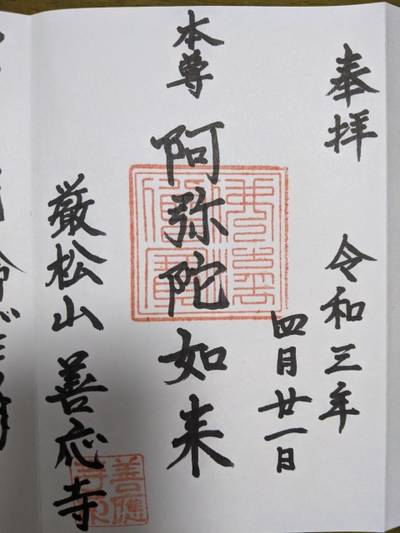 奉拝
令和三年
四月廿一日
本尊
阿弥陀如来
厳松山 善応寺